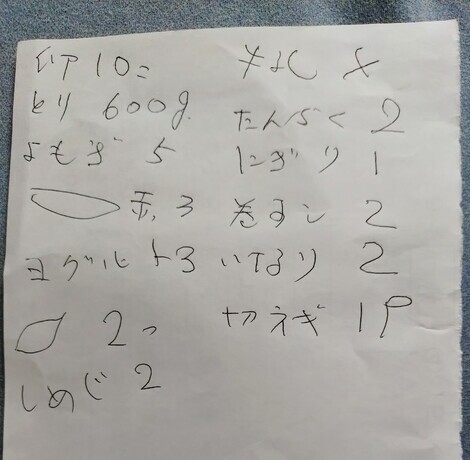 10コ
とり 600g
よもぎ 5
3
ヨーグルト3
2つ
しめじ 2
たんぱく 2
にぎり 1
巻すし 2
いなり 2
切ネギ 1P